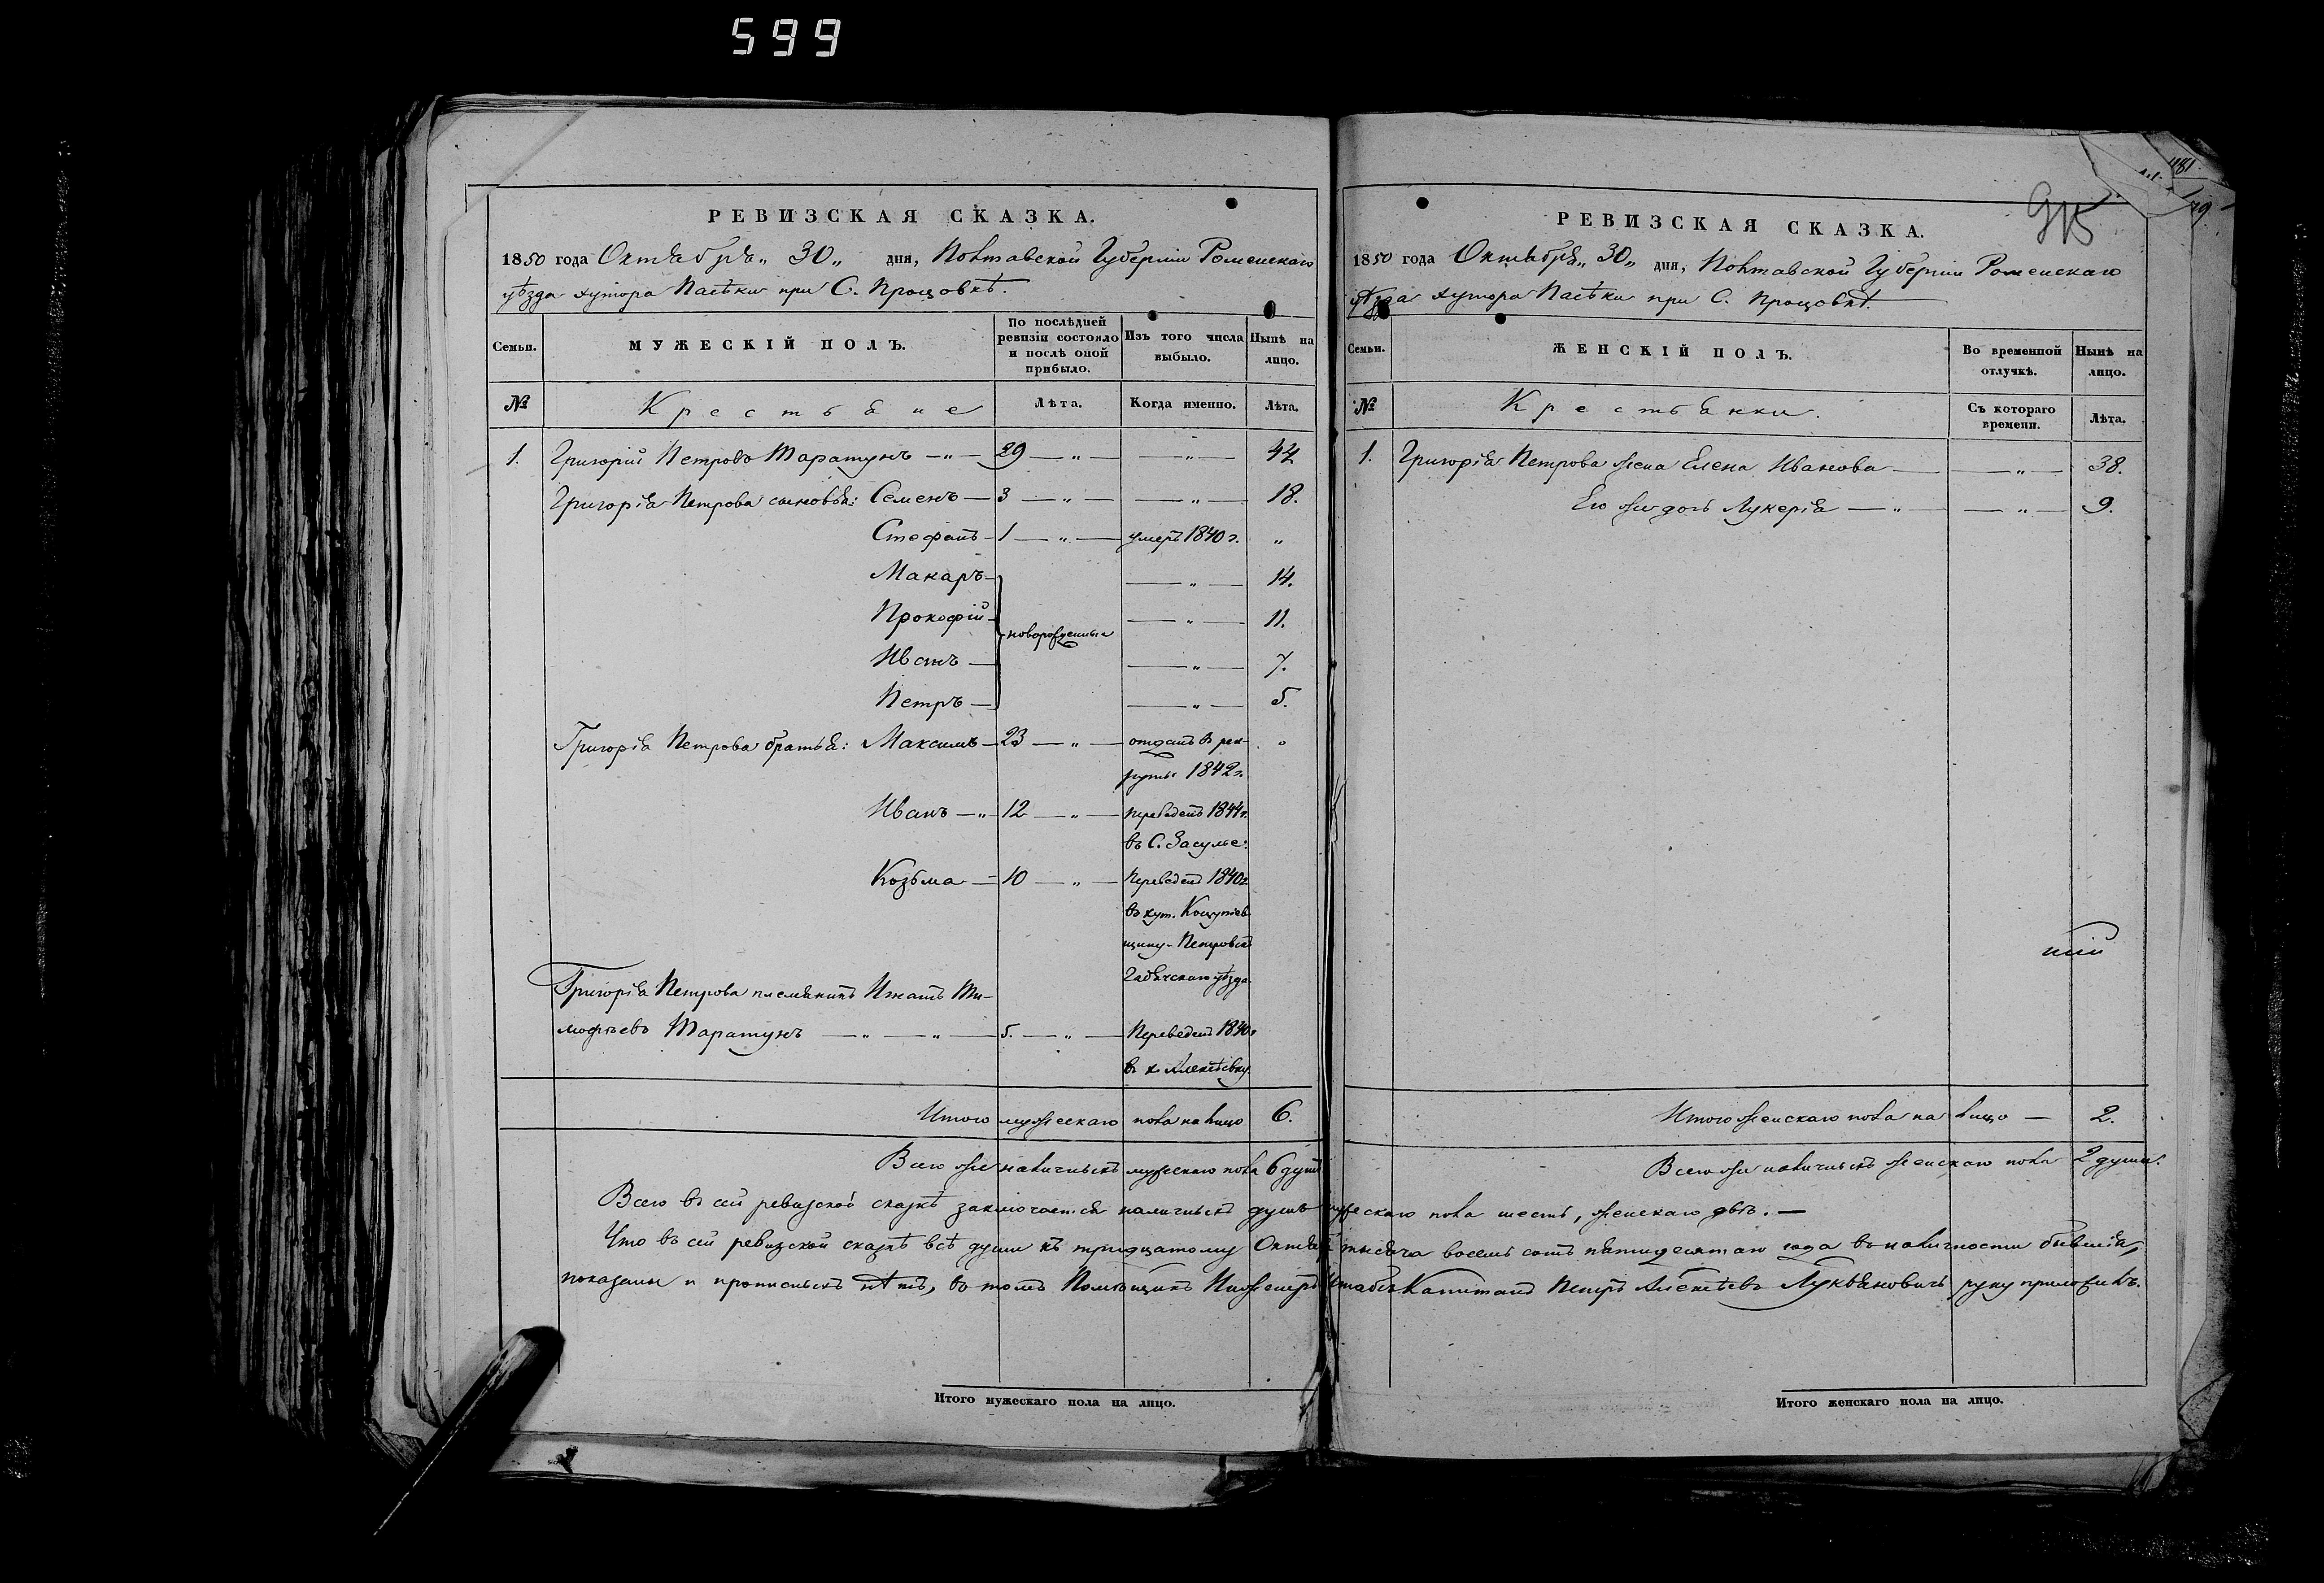 599
РЕВИЗСКАЯ СКАЗКА.
1850 года Октября „30„ дня, Полтавской Губерніи Роменскаго
уѣзда хутора Пасѣки при С. Процовкѣ.
Семьи.
МУЖЕСКІЙ ПОЛЪ.
По послѣдней ревизіи состояло и послѣ оной прибыло.
Изъ того числа выбыло.
Нынѣ на лицо.
№
Крестьяне
Лѣта.
Когда именно.
Лѣта.
1. Григорій Петровъ Таратунъ — „ — 29 — „ — — „ — 42
Григорія Петрова сыновья: Семенъ — 3 — „ — — „ — 18.
Стефанъ — 1 — „ — умеръ 1840 г. „
Макаръ — — „ — 14.
Прокофій — — „ — 11.
новорожденные
Иванъ — — „ — 7.
Петръ — — „ — 5.
Григорія Петрова братья: Максимъ — 23 — „ — отданъ в рек-
руты 1842 г.
Иванъ — „ — 12 — „ — переведенъ 1844 г.
въ С. Засулье.
Козьма — 10 — „ — Переведенъ 1840 г
въ хут.
щину-
Гадячскаго уѣзда
Григорія Петрова племянникъ Игнатъ Ти-
мофѣевъ Таратунъ — „ — „ — 5. — „ — Переведенъ 1840 г
в х. Алексѣевку
Итого мужескаго пола на лицо 6.
Всего же наличныхъ мужескаго пола 6 душъ
РЕВИЗСКАЯ СКАЗКА.
1850 года Октября „30„ дня, Полтавской Губерніи Роменскаго
уѣзда хутора Пасѣки при С. Процовкѣ.
Семьи.
ЖЕНСКІЙ ПОЛЪ.
Во временной отлучкѣ.
Нынѣ на лицо.
№
Крестьянки.
Съ котораго времени.
Лѣта.
1. Григорія Петрова жена Елена Иванова — — „ — 38.
Его же дочь Лукерія — „ — — „ — 9.
Итого женскаго пола на лицо — 2.
Всего же наличныхъ женскаго пола 2 души.
Всего въ сей ревизской сказкѣ заключается наличныхъ душъ мужескаго пола шесть, женскаго двѣ. —
Что въ сей ревизской сказкѣ всѣ души къ тридцатому Октября тысяча восемь сотъ пятидесятаго года въ наличности бывшія,
показаны и прописныхъ нѣтъ, въ томъ Помѣщикъ Инженеръ Штабсъ Капитанъ Петръ Алексѣевъ Лукьяновичъ руку приложилъ.
Итого мужескаго пола на лицо.
Итого женскаго пола на лицо.